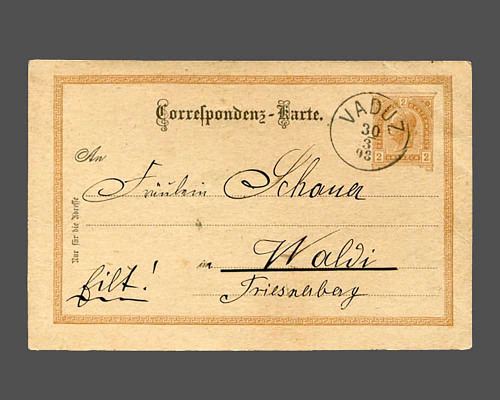 Correspondenz-Karte.
VADUZ
30
3
93
2
2 2
An
Fräulein Schauer
Nur für die Adresse
in Waldi
Eilt!
Friesnerberg